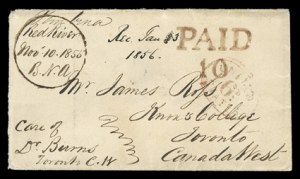 Pembina
Red River
Nov 10 - 1855
B.N.A
Rec Jan 3
1856.
PAID
10
Mr. James Ross
Knox College
Toronto
Canada West
Care of
Dr Burns
Toronto C.W